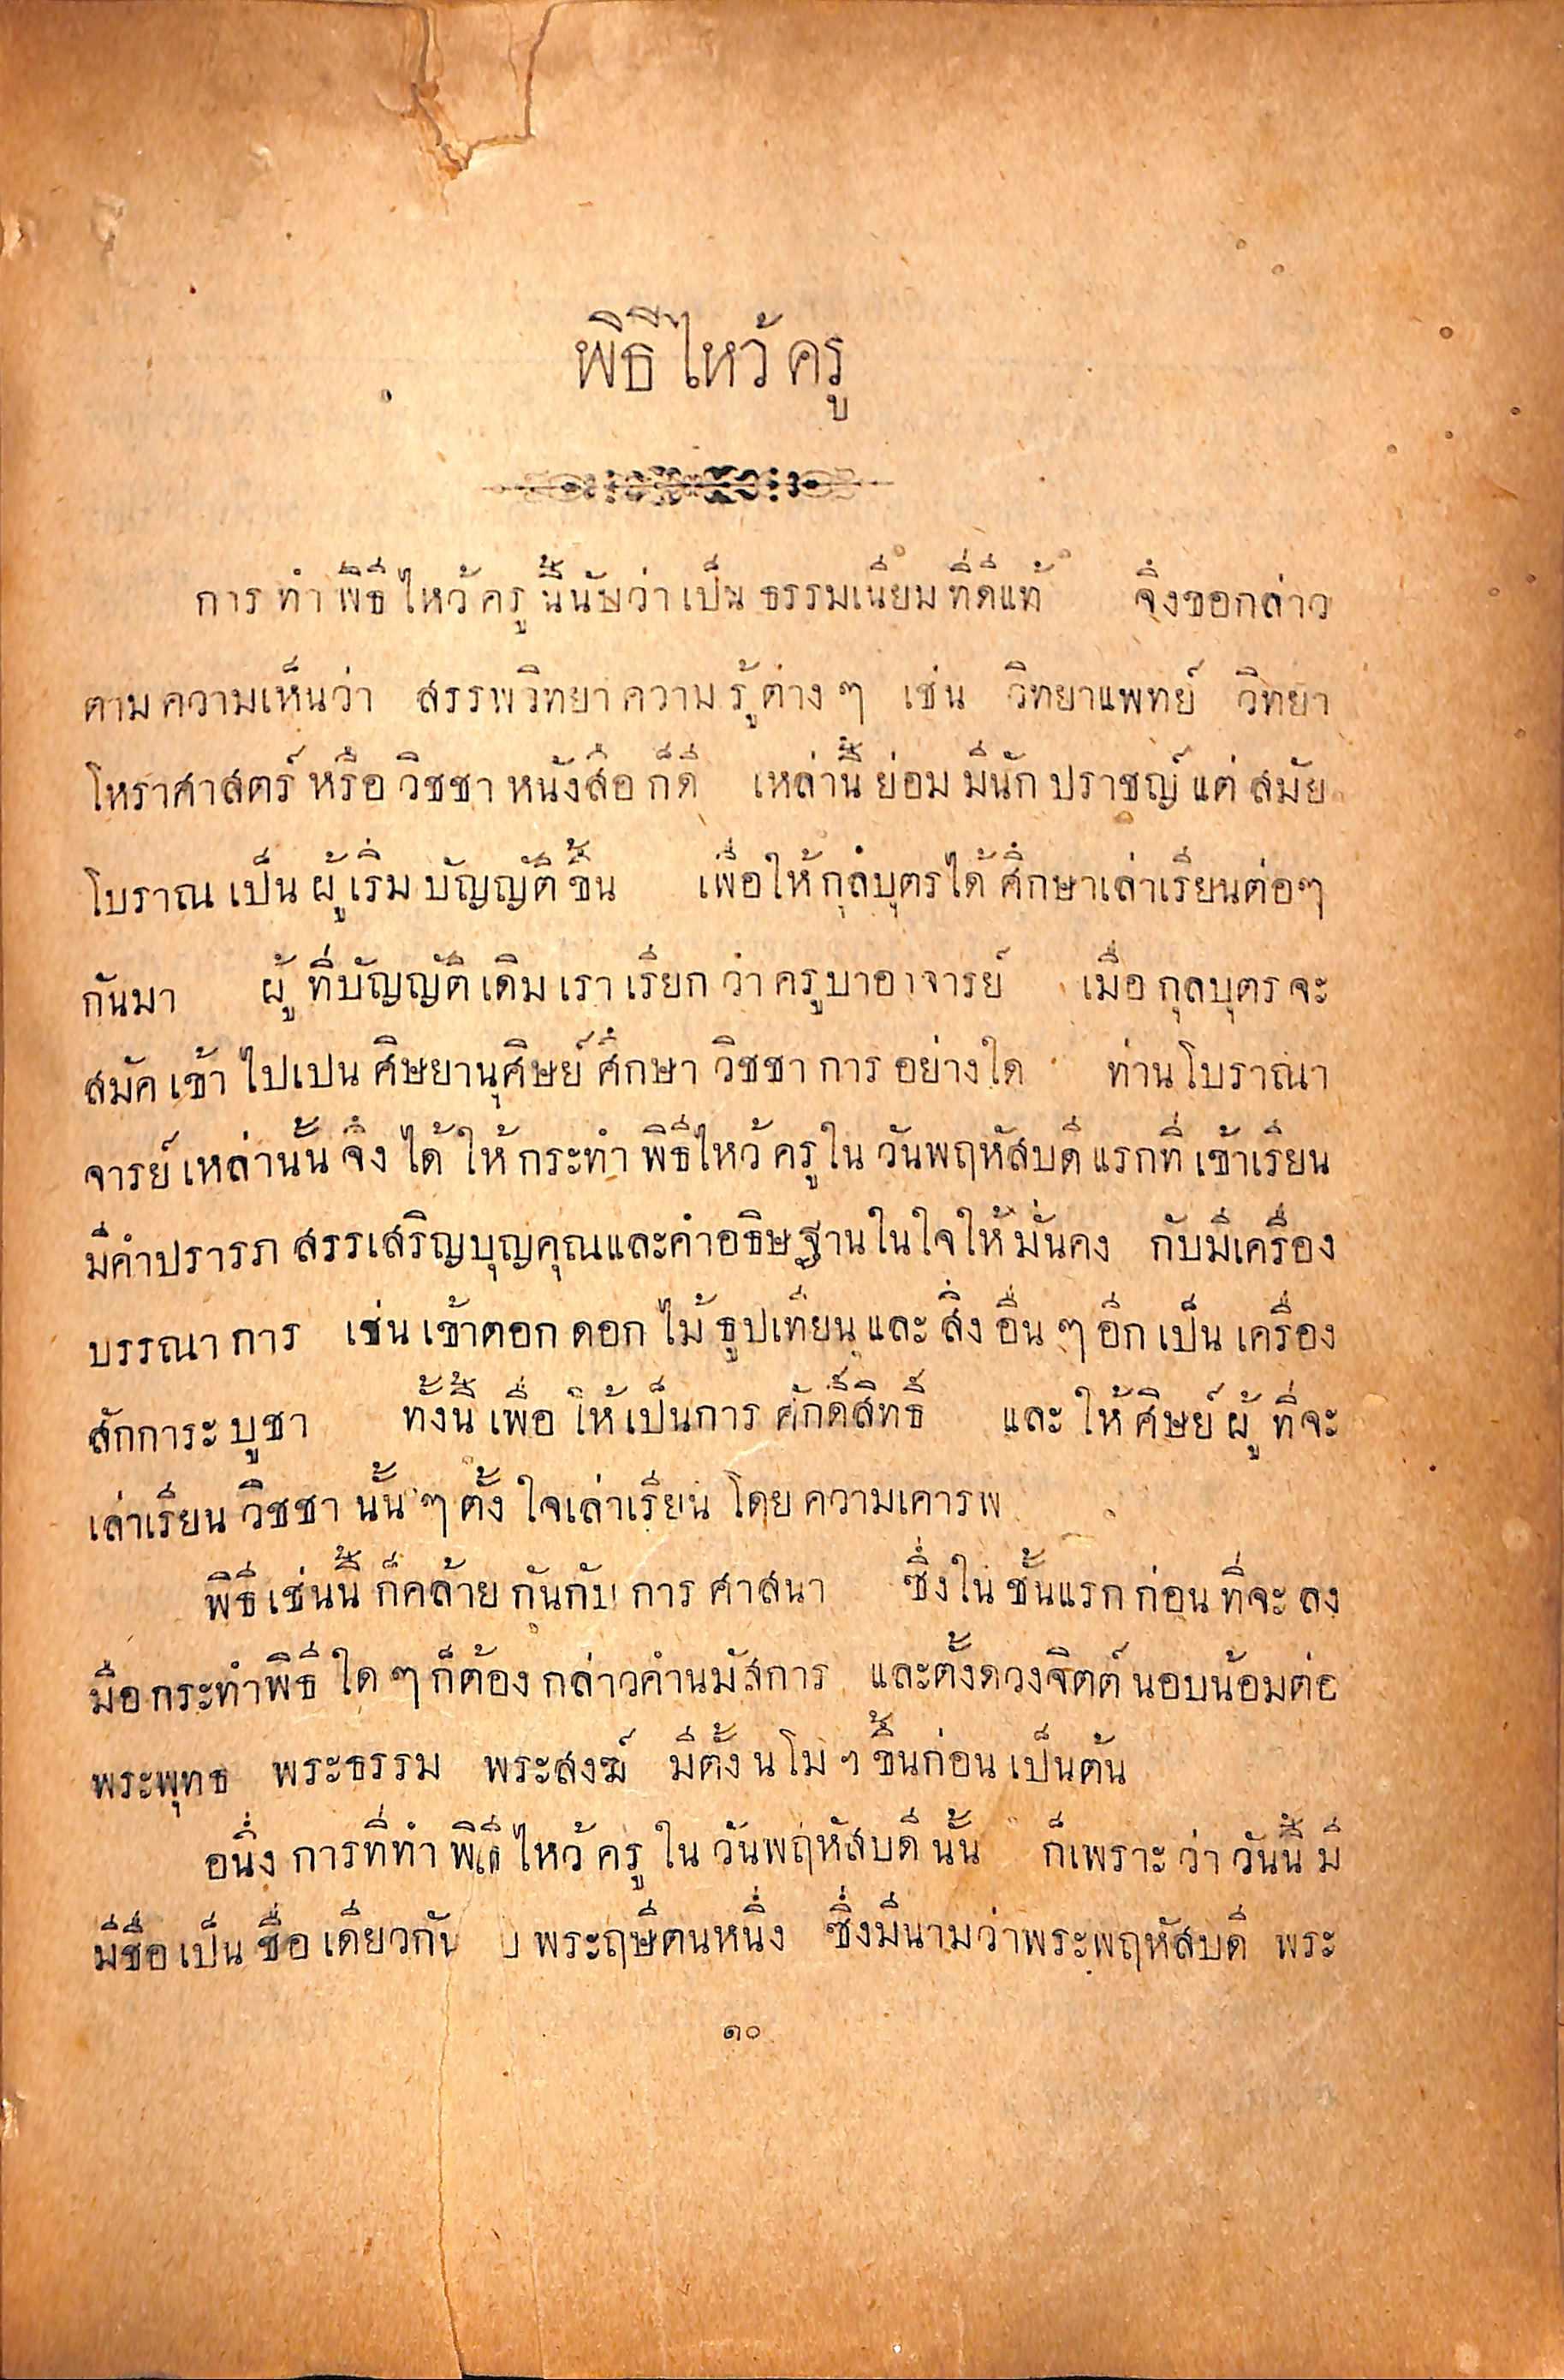 พิธีไหว้ครู
การทำพิธีไหว้ครูนี้นับว่าเป็นธรรมเนียมที่ดีแท้ จึ่งขอกล่าว
ตามความเห็นว่า สรรพวิทยาความรู้ต่างๆ เช่น วิทยาแพทย์ วิทยา
โหราศาสตร์หรือวิชชาหนังสือก็ดี เหล่านี้ย่อมมีนักปราชญ์แต่สมัย
โบราณเป็นผู้เริ่มบัญญัติขึ้น เพื่อให้กุลบุตรได้ศึกษาเล่าเรียนต่อๆ
กันมา ผู้ที่บัญญัติเดิมเราเรียกว่าครูบาอาจารย์ เมื่อกุลบุตรจะ
สมัคเข้าไปเปนศิษยานุศิษย์ศึกษาวิชชาการอย่างใด ท่านโบราณา
จารย์เหล่านั้นจึงได้ให้กระทำพิธีไหว้ครูในวันพฤหัสบดีแรกที่เข้าเรียน
มีคำปรารภสรรเสริญบุญคุณและคำอธิษฐานในใจให้มั่นคง กับมีเครื่อง
บรรณาการ เช่นเข้าตอกดอกไม้ธูปเทียนและสิ่งอื่นๆอีกเป็นเครื่อง
สักการะบูชา ทั้งนี้เพื่อให้เป็นการศักดิ์สิทธิ์ และให้ศิษย์ผู้ที่จะ
เล่าเรียนวิชชานั้นๆตั้งใจเล่าเรียนโดยความเคารพ
พิธีเช่นนี้ก็คล้ายกันกับการศาสนา ซึ่งในชั้นแรกก่อนที่จะลง
มือกระทำพิธีใดๆก็ต้องกล่าวคำนมัสการ และตั้งดวงจิตต์นอบน้อมต่อ
พระพุทธ พระธรรม พระสงฆ์ มีตั้งนโมฯขึ้นก่อนเป็นต้น
อนึ่งการที่ทำพิธีไหว้ครูในวันพฤหัสบดีนั้น ก็เพราะว่าวันนี้มี
มีชื่อเป็นชื่อเดียวกันบพระฤษีตนหนึ่ง ซึ่งมีนามว่าพระพฤหัสบดี พระ
๑๐